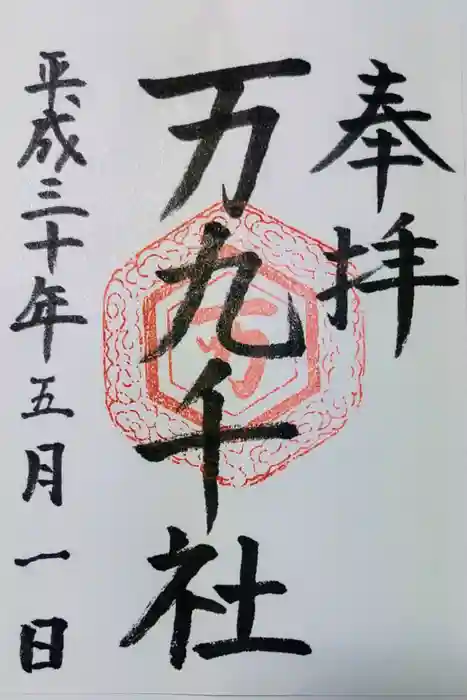 奉拝
万九千社
平成三十年五月一日